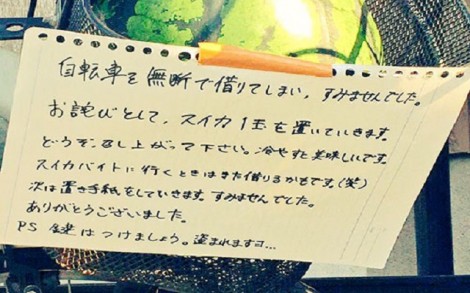 自転車を無断で借りてしまい、すみませんでした。
お詫びとして、スイカ1玉を置いていきます。
どうぞ、召し上がって下さい。冷やすと美味しいです。
スイカバイトに行くときはまた借りるかもです。(笑)
次は置き手紙をしていきます。すみませんでした。
ありがとうございました。
PS 鍵はつけましょう。盗まれますヨ...